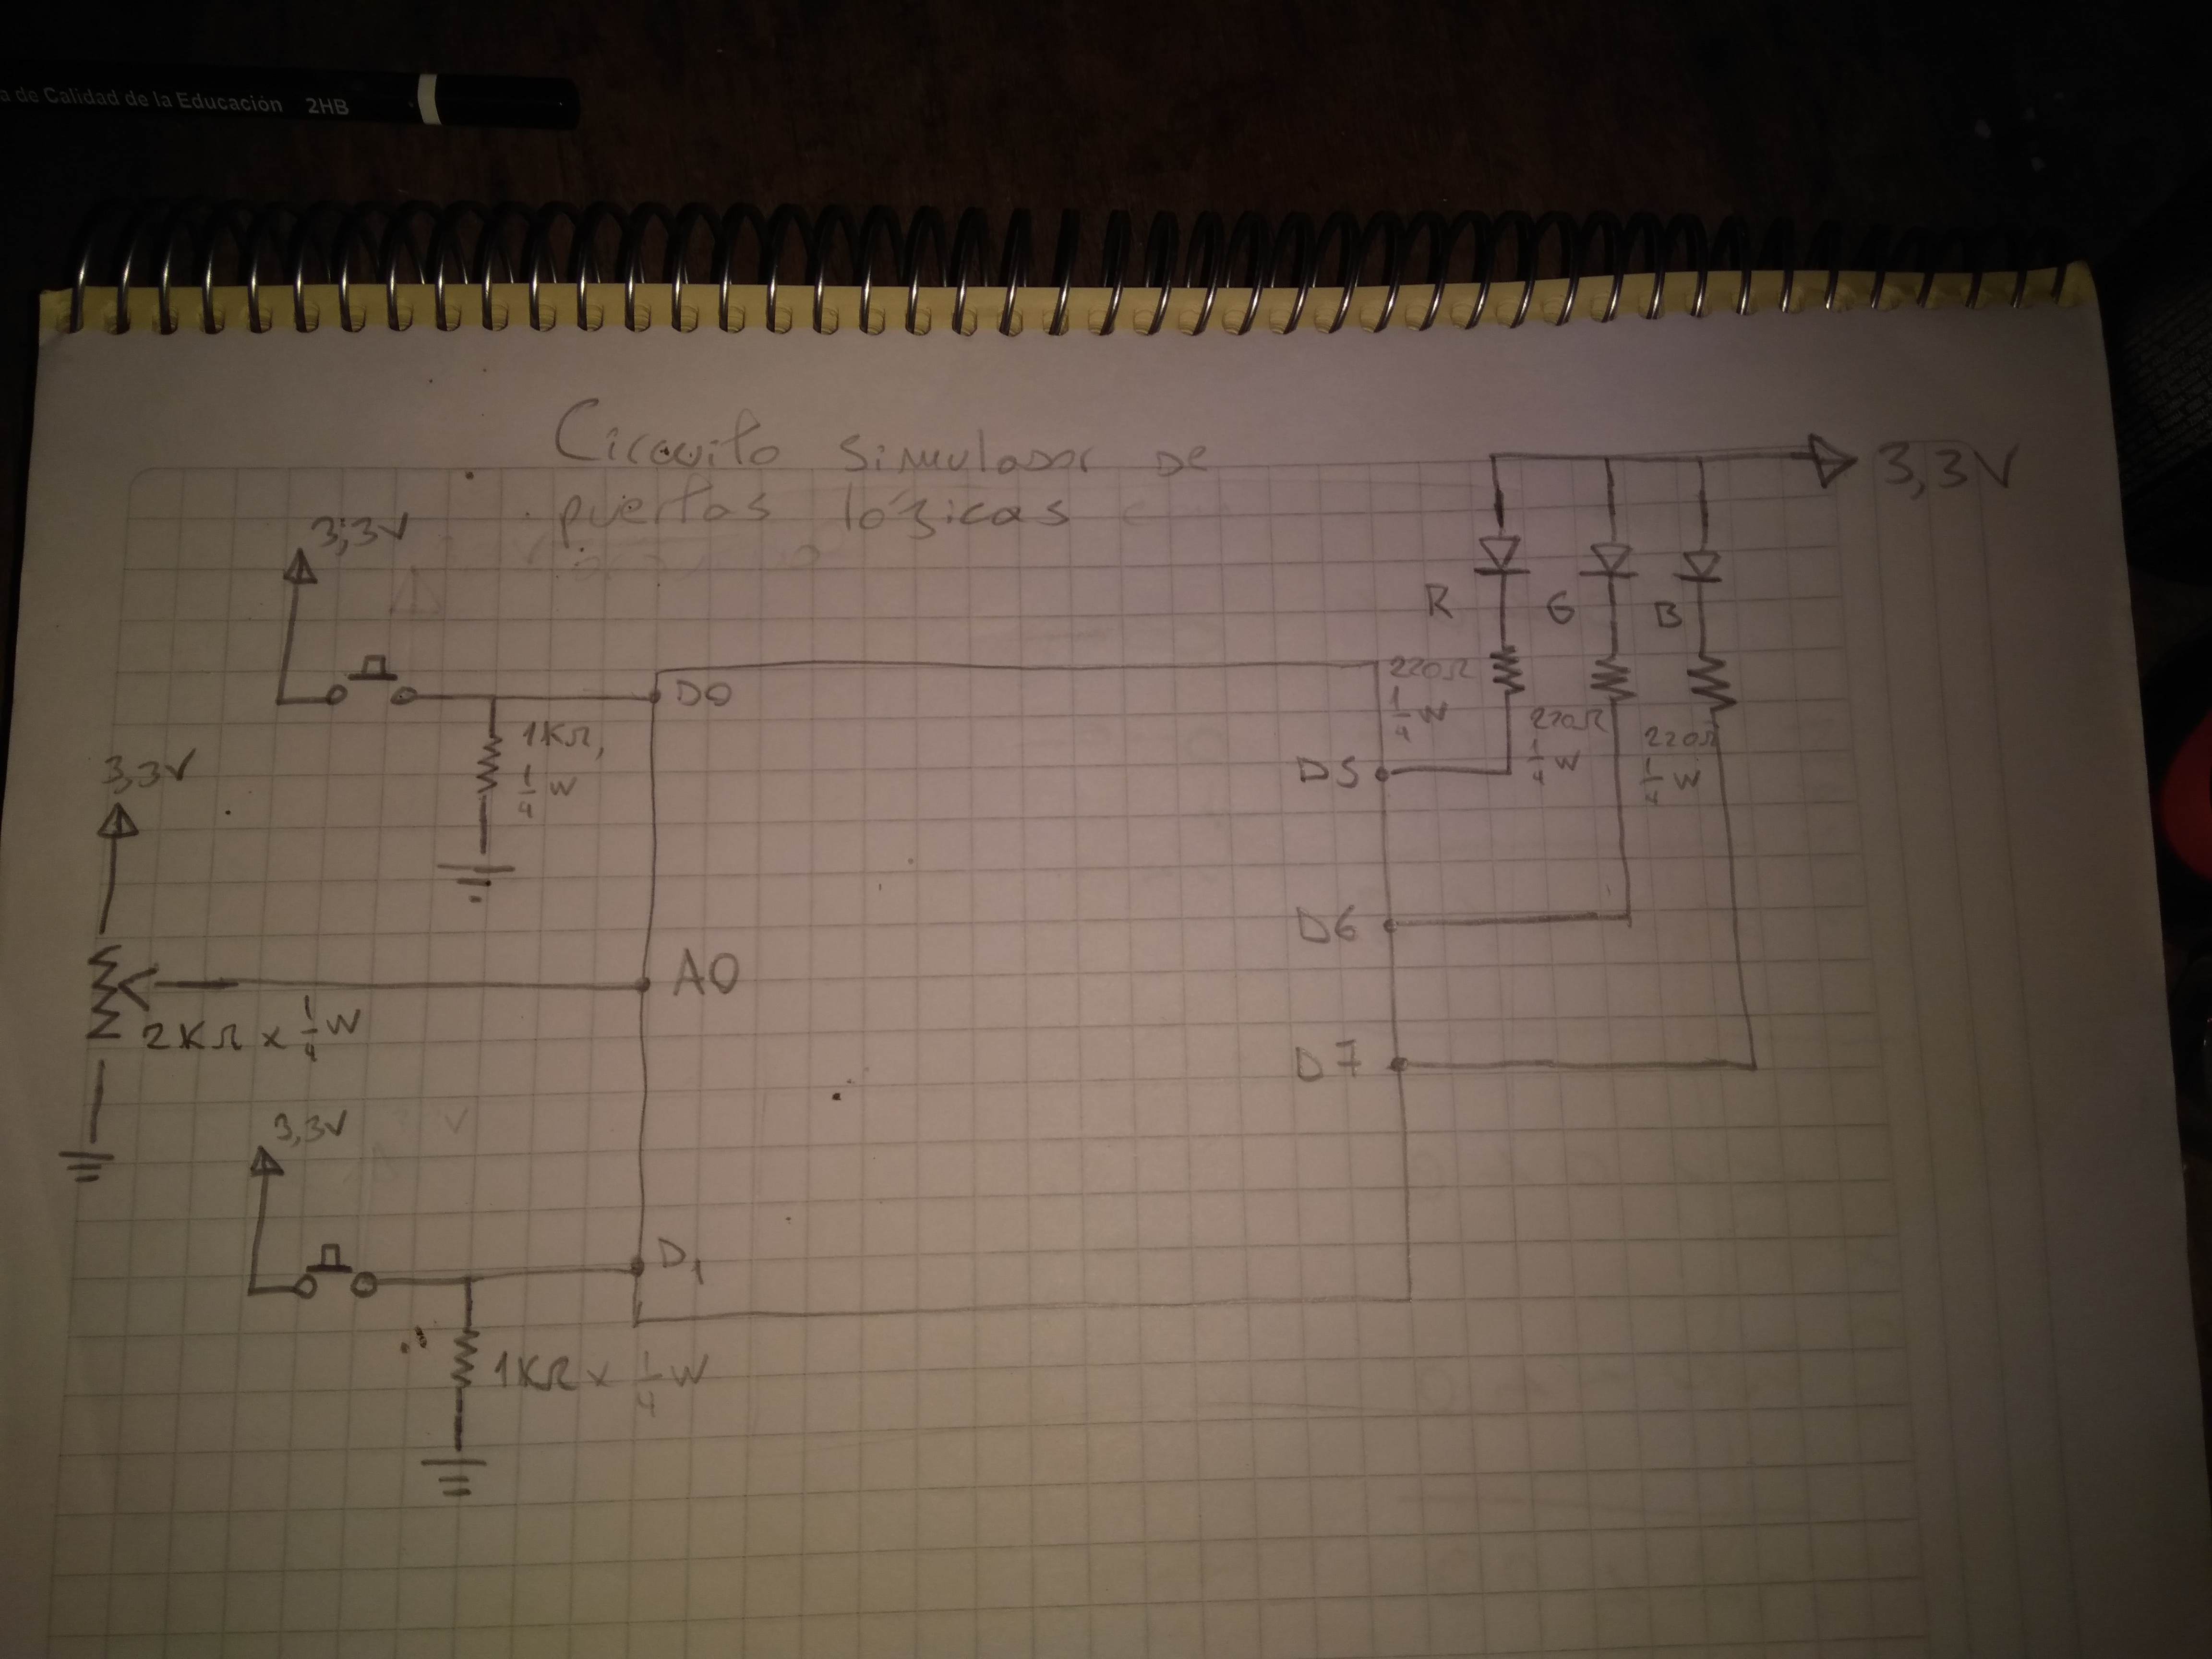 a de Calidad de la Educación 2HB
Circuito simulador de
puertas lógicas
3,3V
3,3V
D0
1KΩ,
1/4 W
3,3V
A0
2KΩ x 1/4 W
3,3V
D1
1KΩ x 1/4 W
R G B
220Ω
1/4 W
220Ω
1/4 W
220Ω
1/4 W
D5
D6
D7